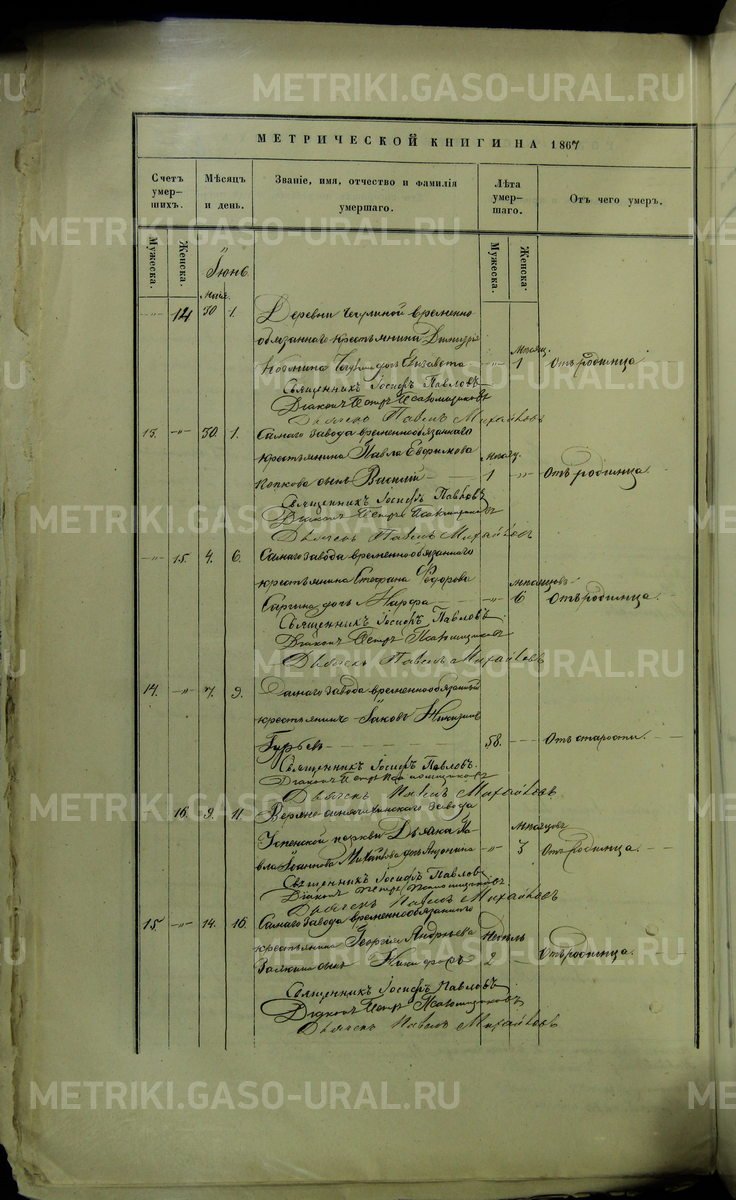 METRIKI.GASO-URAL.RU
МЕТРИЧЕСКОЙ КНИГИ НА 1867
Счетъ умер-шихъ.
Мѣсяцъ и день.
Званіе, имя, отчество и фамилія умершаго.
Лѣта умер-шаго.
Отъ чего умеръ.
Мужеска.
Женска.
Мужеска.
Женска.
Іюнь.
Мая.
14 30 1. Деревни временно
обязаннаго крестьянина Димитрія
дочь Елизавета 1 Отъ родимца
Священникъ Іосифъ Павловъ
Діаконъ Петръ
Дьячекъ Павелъ Михайловъ
13. 30. 1. Самаго завода временнообязаннаго
крестьянина Павла Евфимова
Попкова сынъ Василій 1 Отъ родимца.
Священникъ Іосифъ Павловъ
Діаконъ Петръ
Дьячекъ Павелъ Михайловъ
15. 4. 6. Самаго завода временнообязаннаго
крестьянина Стефана Федорова
Саргина дочь Марфа 6 Отъ родимца.
Священникъ Іосифъ Павловъ
Діаконъ Петръ
Дьячекъ Павелъ Михайловъ
14. 7. 9. Самаго завода временнообязанный
крестьянинъ Іаковъ Никитинъ
Гурьевъ 58. Отъ старости.
Священникъ Іосифъ Павловъ.
Діаконъ Петръ
Дьячекъ Павелъ Михайловъ
16. 9. 11. Верхне-синячихинскаго завода
Успенской церкви Дьячка Па-
вла Іоаннова Михайлова дочь Антонина 3 Отъ родимца.
Священникъ Іосифъ Павловъ
Діаконъ Петръ
Дьячекъ Павелъ Михайловъ
15 14. 16. Самаго завода временнообязаннаго
крестьянина Георгія Андреева Недѣль
сынъ Никифоръ 2 Отъ родимца.
Священникъ Іосифъ Павловъ
Діаконъ Петръ
Дьячекъ Павелъ Михайловъ
METRIKI.GASO-URAL.RU